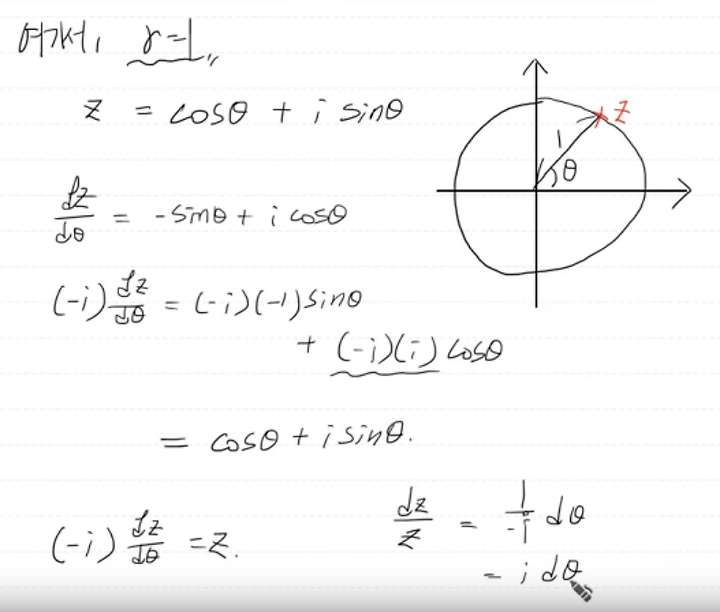 여기서, r=1,,
z = cosθ + i sinθ
z
1
θ
dz/dθ = -sinθ + i cosθ
(-i) dz/dθ = (-i)(-1)sinθ
+ (-i)(i) cosθ
= cosθ + i sinθ.
(-i) dz/dθ = z.
dz/z = 1/-i dθ
= i dθ